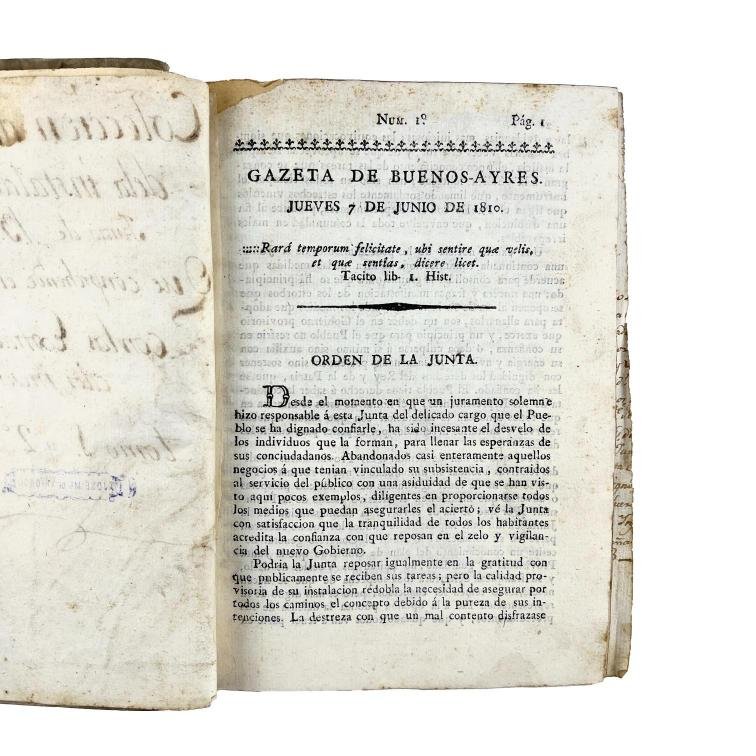 Coleccion
dela instala
tomo 1 y 2
Num. 1º Pág. 1
GAZETA DE BUENOS-AYRES.
JUEVES 7 DE JUNIO DE 1810.
:::::Rará temporum felicitate, ubi sentire quæ velis,
et quæ sentias, dicere licet.
Tacito lib. 1. Hist.
ORDEN DE LA JUNTA.
Desde el momento en que un juramento solemne
hizo responsable á esta Junta del delicado cargo que el Pue-
blo se ha dignado confiarle, ha sido incesante el desvelo de
los individuos que la forman, para llenar las esperanzas de
sus conciudadanos. Abandonados casi enteramente aquellos
negocios á que tenian vinculado su subsistencia, contraidos
al servicio del público con una asiduidad de que se han vis-
to aquí pocos exemplos, diligentes en proporcionarse todos
los medios que puedan asegurarles el acierto; vé la Junta
con satisfaccion que la tranquilidad de todos los habitantes
acredita la confianza con que reposan en el zelo y vigilan-
cia del nuevo Gobierno.
Podria la Junta reposar igualmente en la gratitud con
que publicamente se reciben sus tareas; pero la calidad pro-
visoria de su instalacion redobla la necesidad de asegurar por
todos los caminos el concepto debido á la pureza de sus in-
tenciones. La destreza con que un mal contento disfrazase